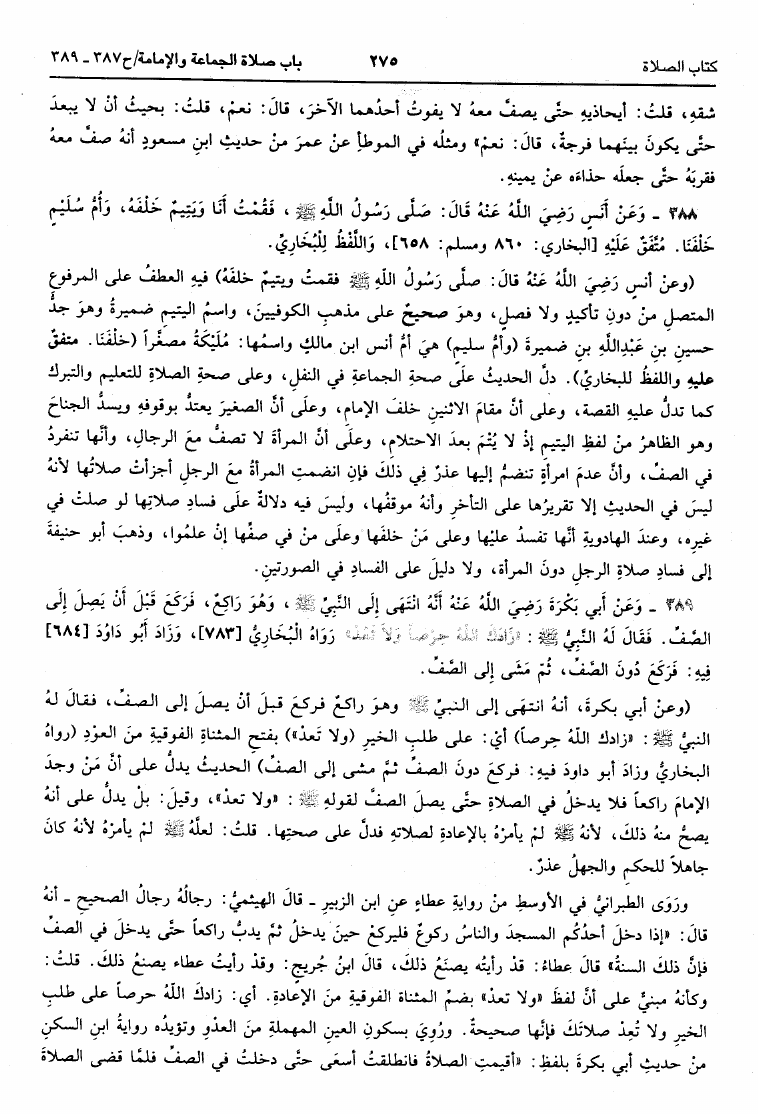 كتاب الصلاة ٢٧٥ باب صلاة الجماعة والإمامة/ح٣٨٧ ـ ٣٨٩
شقهِ، قلتُ: أيحاذيهِ حتَّى يصفَّ معهُ لا يفوتُ أحدُهما الآخرَ، قالَ: نعمْ، قلتُ: بحيثُ أنْ لا يبعدَ
حتَّى يكونَ بينَهما فرجةٌ، قالَ: نعمْ» ومثلُه في الموطأِ عنْ عمرَ منْ حديثِ ابنِ مسعودٍ أنهُ صفَّ معهُ
فقربَهُ حتَّى جعلَه حذاءَه عنْ يمينِهِ.
٣٨٨ ـ وَعَنْ أَنَسٍ رَضِيَ اللَّهُ عَنْهُ قَالَ: صَلَّى رَسُولُ اللَّهِ ﷺ، فَقُمْتُ أَنَا وَيَتِيمٌ خَلْفَهُ، وَأُمُّ سُلَيْمٍ
خَلْفَنَا. مُتَّفَقٌ عَلَيْهِ [البخاري: ٨٦٠ ومسلم: ٦٥٨]، وَاللَّفْظُ لِلْبُخَارِيِّ.
(وعنْ أنسٍ رَضِيَ اللَّهُ عَنْهُ قالَ: صلَّى رَسُولُ اللَّهِ ﷺ فقمتُ ويتيمٌ خلفَهُ) فيهِ العطفُ على المرفوعِ
المتصلِ منْ دونِ تأكيدٍ ولا فصلٍ، وهوَ صحيحٌ على مذهبِ الكوفيينَ، واسمُ اليتيمِ ضميرةُ وهوَ جدُّ
حسينِ بنِ عَبْدِاللَّهِ بنِ ضميرةَ (وأمُّ سليمٍ) هيَ أمُّ أنس ابن مالكٍ واسمُها: مُلَيْكَةُ مصغَّراً (خلْفَنَا. متفقٌ
عليهِ واللفظُ للبخاريِّ). دلَّ الحديثُ علَى صحةِ الجماعةِ في النفلِ، وعلى صحةِ الصلاةِ للتعليمِ والتبركِ
كما تدلُّ عليهِ القصة، وعلى أنَّ مقامَ الاثنينِ خلفَ الإمامِ، وعلَى أنَّ الصغيرَ يعتدُّ بوقوفهِ ويسدُّ الجناحَ
وهو الظاهرُ منْ لفظِ اليتيمِ إذْ لا يُتْمَ بعدَ الاحتلامِ، وعلَى أنَّ المرأةَ لا تصفُّ معَ الرجالِ، وأنَّها تنفردُ
في الصفِّ، وأنَّ عدمَ امرأةٍ تنضمُّ إليها عذرٌ فِي ذلكَ فإنِ انضمتِ المرأةُ معَ الرجلِ أجزأتْ صلاتُها لأنهُ
ليسَ في الحديثِ إلا تقريرُها على التأخرِ وأنهُ موقفُها، وليسَ فيه دلالةٌ علَى فسادِ صلاتِها لو صلتْ في
غيرِه، وعندَ الهادويةِ أنَّها تفسدُ عليْها وعلى مَنْ خلفَها وعلَى منْ في صفِّها إنْ علمُوا، وذهبَ أبو حنيفةَ
إلى فسادِ صلاةِ الرجلِ دونَ المرأة، ولا دليلَ على الفسادِ في الصورتينِ.
٣٨٩ ـ وَعَنْ أَبي بَكْرَةَ رَضِيَ اللَّهُ عَنْهُ أَنَّهُ انْتَهَى إِلَى النَّبِيِّ ﷺ، وَهُوَ رَاكِعٌ، فَرَكَعَ قَبْلَ أَنْ يَصِلَ إِلَى
الصَّفِّ. فَقَالَ لَهُ النَّبِيُّ ﷺ: «زَادَكَ اللَّهُ حِرْصاً وَلاَ تَعُدْ» رَوَاهُ الْبُخَارِيُّ [٧٨٣]، وَزَادَ أَبُو دَاوُدَ [٦٨٤]
فِيهِ: فَرَكَعَ دُونَ الصَّفِّ، ثُمَّ مَشَى إِلَى الصَّفِّ.
(وعنْ أبي بكرةَ، أنهُ انتهَى إلى النبيِّ ﷺ وهوَ راكعٌ فركعَ قبلَ أنْ يصلَ إلَى الصفِّ، فقالَ لهُ
النبيُّ ﷺ: «زادك اللَّهُ حرصاً) أيْ: على طلبِ الخيرِ (ولا تَعدْ») بفتحِ المثناةِ الفوقيةِ منَ العوْدِ (رواهُ
البخاريُّ وزادَ أبو داودَ فيهِ: فركعَ دونَ الصفِّ ثمَّ مشى إلى الصفِّ) الحديثُ يدلُّ على أنَّ مَنْ وجدَ
الإمامَ راكعاً فلا يدخلُ في الصلاةِ حتَّى يصلَ الصفَّ لقولهِ ﷺ: «ولا تعدْ»، وقيلَ: بلْ يدلُّ على أنهُ
يصحُّ منهُ ذلكَ، لأنهُ ﷺ لمْ يأمرْهُ بالإعادةِ لصلاتهِ فدلَّ على صحتِها. قلتُ: لعلَّهُ ﷺ لمْ يأمرْهُ لأنهُ كانَ
جاهلاً للحكمِ والجهلُ عذرٌ.
وروَى الطبرانيُّ في الأوسطِ منْ روايةِ عطاءٍ عنِ ابنِ الزبيرِ ـ قالَ الهيثميُّ: رجالُهُ رجالُ الصحيحِ ـ أنهُ
قالَ: «إذا دخلَ أحدُكم المسجدَ والناسُ ركوعٌ فليركعْ حينَ يدخلُ ثمَّ يدبُّ راكعاً حتَّى يدخلَ في الصفِّ
فإنَّ ذلكَ السنةُ» قالَ عطاءُ: قدْ رأيتُه يصنَعُ ذلكَ، قالَ ابنُ جُريجٍ: وقدْ رأيتُ عطاء يصنعُ ذلكَ. قلتُ:
وكأنهُ مبنيٌّ على أنَّ لفظَ «ولا تعد» بضمِّ المثناة الفوقيةِ منَ الإعادةِ. أي: زادكَ اللَّهُ حرصاً على طلبِ
الخيرِ ولا تُعِدْ صلاتكَ فإنَّها صحيحةٌ. ورُوِيَ بسكونِ العينِ المهملةِ منَ العدْوِ وتؤيدُه روايةُ ابنِ السكنِ
منْ حديثِ أبي بكرةَ بلفظِ: «أقيمتِ الصلاةُ فانطلقتُ أسعَى حتَّى دخلتُ في الصفِّ فلمَّا قضى الصلاةَ